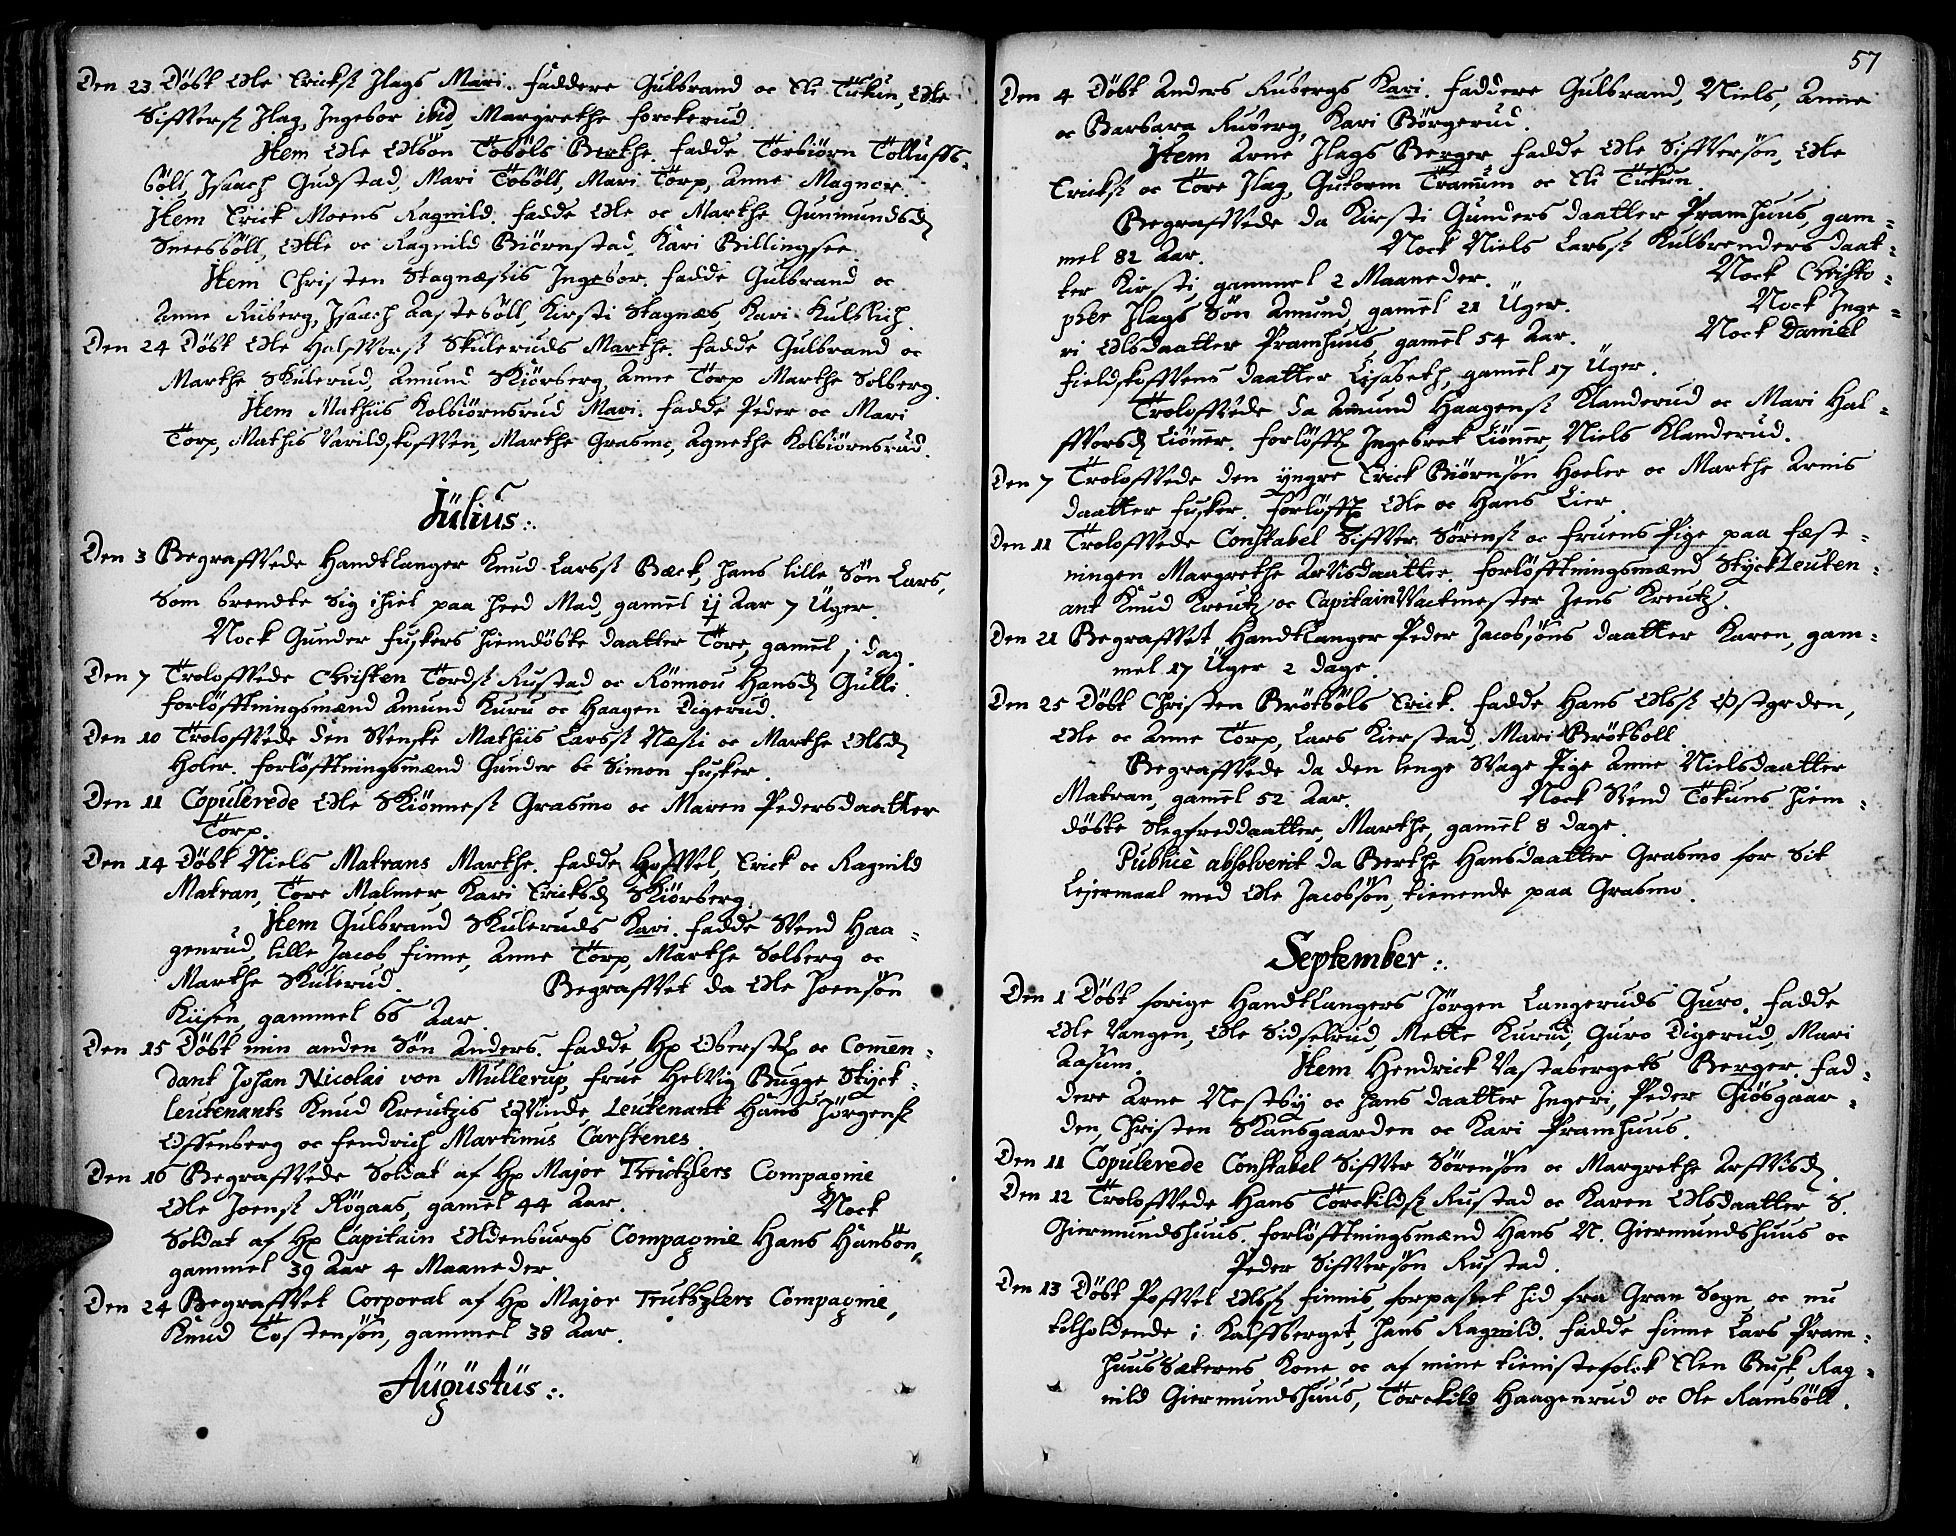 Den 23 Döbt Ole Ericks: Jlags Mari. Faddere Gulbrand oc Eli Tukun, Ole
Siffvers: Jlag, Ingebor ibid, Margrethe Forckerud.
Item Ole Olsön Toböls Berthe. Fadde Torbiörn Tolluffs-
böll, Isaach Gudstad, Mari Toböll, Mari Torp, Anne Magnor.
Item Erick Moens Ragnild. Fadde Ole oc Marthe Gunmundsd
Sneesböll, Olle oc Ragnild Biörnstad, Kari Billingsee.
Item Christen Skagnæssis Ingebor. Fadde Gulbrand oc
Anne Ruberg, Isaach Aasteböll, Kirsti Skagnæs, Kari Kulblich.
Den 24 Döbt Ole Halffvors: Skuleruds Marthe. Fadde Gulbrand oc
Marthe Skulerud, Amund Skiörberg, Anne Torp Marthe Solberg.
Item Mathiis Kolbiörnsrud Mari. Fadde Peder oc Mari
Torp, Mathis Varildskoffven, Marthe Grasmo, Agnethe Kolbiörnsrud.
Julius:.
Den 3 Begraffvede Handtlanger Knud Larss: Bæck, hans lille Sön Lars,
Som brendte Sig ihiel paa heed Mad, gamel ij Aar 7 Uger.
Nock Gunder Fuskers hiemdöbte daatter Tore, gamel j dag.
Den 7 Troloffvede Christen Tords: Rustad oc Rönnou Hansd Gulli.
Forlöfftningsmænd Amund Kuru oc Haagen Digerud.
Den 10 Troloffvede den Svenske Mathiis Larss: Næsti oc Marthe Olsd
Holer. Forlöfftningsmænd Gunder oc Simon Fusker.
Den 11 Copulerede Ole Skiönnes: Grasmo oc Maren Pedersdaatter
Torp.
Den 14 Döbt Niels Matrans Marthe. Fadde Poffvel, Erick oc Ragnild
Matran, Tore Malmer, Kari Ericksd Skiörberg.
Item Gulbrand Skuleruds Kari. Fadde Svend Haa-
genrud, lille Jacob Finne, Anne Torp, Marthe Solberg oc
Marthe Skulerud. Begraffvet da Ole Joensön
Kiisen, gammel 66 Aar.
Den 15 Döbt min anden Sön Anders. Fadde Hr Oberstl oc Comen-
dant Johan Nicolai von Mullerup, Frue Helvig Bugge Styck-
leutenants Knud Kreutzis Qvinde, Leutenant Hans Jörgens:
Offenberg oc Fendrich Martinus Carstenes.
Den 16 Begraffvede Soldat af Hr Major Truthzlers Compagnie
Ole Joens: Rögaas, gamel 44 Aar. Nock
Soldat af Hr Capitain Oldenburgs Compagnie Hans Hansön,
gammel 39 Aar 4 Maaneder.
Den 24 Begraffvet Corporal af Hr Major Truthzlers Compagnie,
Knud Tostensön, gammel 38 Aar.
Augustus:.
57
Den 4 Döbt Anders Rubergs Kari. Faddere Gulbrand, Niels, Anne
oc Barbara Ruberg, Kari Börgerud.
Item Arne Jlags Berger Fadde Ole Siffversön, Ole
Ericks: oc Tore Jlag, Gutorm Tramum oc Eli Tukun.
Begraffvede da Kirsti Gunders daatter Pramhuus, gam-
mel 82 Aar. Nock Niels Larss: Kulbrenders daat-
ter Kirsti, gammel 2 Maaneder. Nock Christo-
pher Jlags Sön Amund, gamel 21 Uger. Nock Inge-
ri Olsdaatter Pramhuus, gamel 54 Aar. Nock Daniel
Fieldskoffvens daatter Lisabeth, gamel 17 Uger.
Troloffvede da Amund Haagens: Klanderud oc Mari Hal-
ffvorsd Liömer. Forlöfft: Ingebret Liömer, Niels Klanderud.
Den 7 Troloffvede den yngre Erick Biörnsön Hoeler oc Marthe Arnis
daatter Fusker. Forlöfft: Ole oc Hans Lier.
Den 11 Troloffvede Constabel Siffver Sörens: oc Fruens Pige paa Fæst-
ningen Margrethe Arvisdaatter. Forlöfftningsmænd StyckLeuten-
ant Knud Kreutz oc CapitainVactmester Jens Kreutz.
Den 21 Begraffvet Handtlanger Peder Jacobsöns daatter Karen, gam-
mel 17 Uger 2 dage.
Den 25 Döbt Christen Brötböls Erick. Fadde Hans Olss: Ostgrden,
Ole oc Anne Torp, Lars Kierstad, Mari Brötböll
Begraffvede da den lenge Svage Pige Anne Nielsdaatter
Matran, gamel 52 Aar. Nock Svend Tokuns hiem-
döbte Slegfreddaatter, Marthe, gamel 8 dage.
Publicè absolverit da Berthe Hansdaatter Grasmo for Sit
Lejermaal med Ole Jacobsön, tienende paa Grasmo.
September:.
Den 1 Döbt forige Handtlangers Jörgen Langeruds Guro. Fadde
Ole Vangen, Ole Sidselrud, Mette Kurud, Guro Digerud, Mari
Aasum. Item Hendrick Vastabergets Berger. Fad-
dere Arne Nestby oc hans daatter Ingeri, Peder Giösgaar-
den, Christen Skansgaarden oc Kari Pramhuus.
Den 11 Copulerede Constabel Siffver Sörensön oc Margrethe Arffvisd.
Den 12 Troloffvede Hans Torckilds: Rustad oc Karen Olsdaatter S.
Giermundshuus. Forlöfftningsmænd Hans N. Giermundshuus oc
Peder Siffversön Rustad.
Den 13 Döbt Poffvel Olss: Finnis, forpasset hid fra Gran Sogn oc nu
tilholdende i Kalffberget, hans Ragnild. Fadde Finne Lars Pram-
huusSæterns Kone oc af mine tienistefolck Elen Busk, Rag-
nild Giermundshuus, Torckild Haagenrud oc Ole Ramböll.